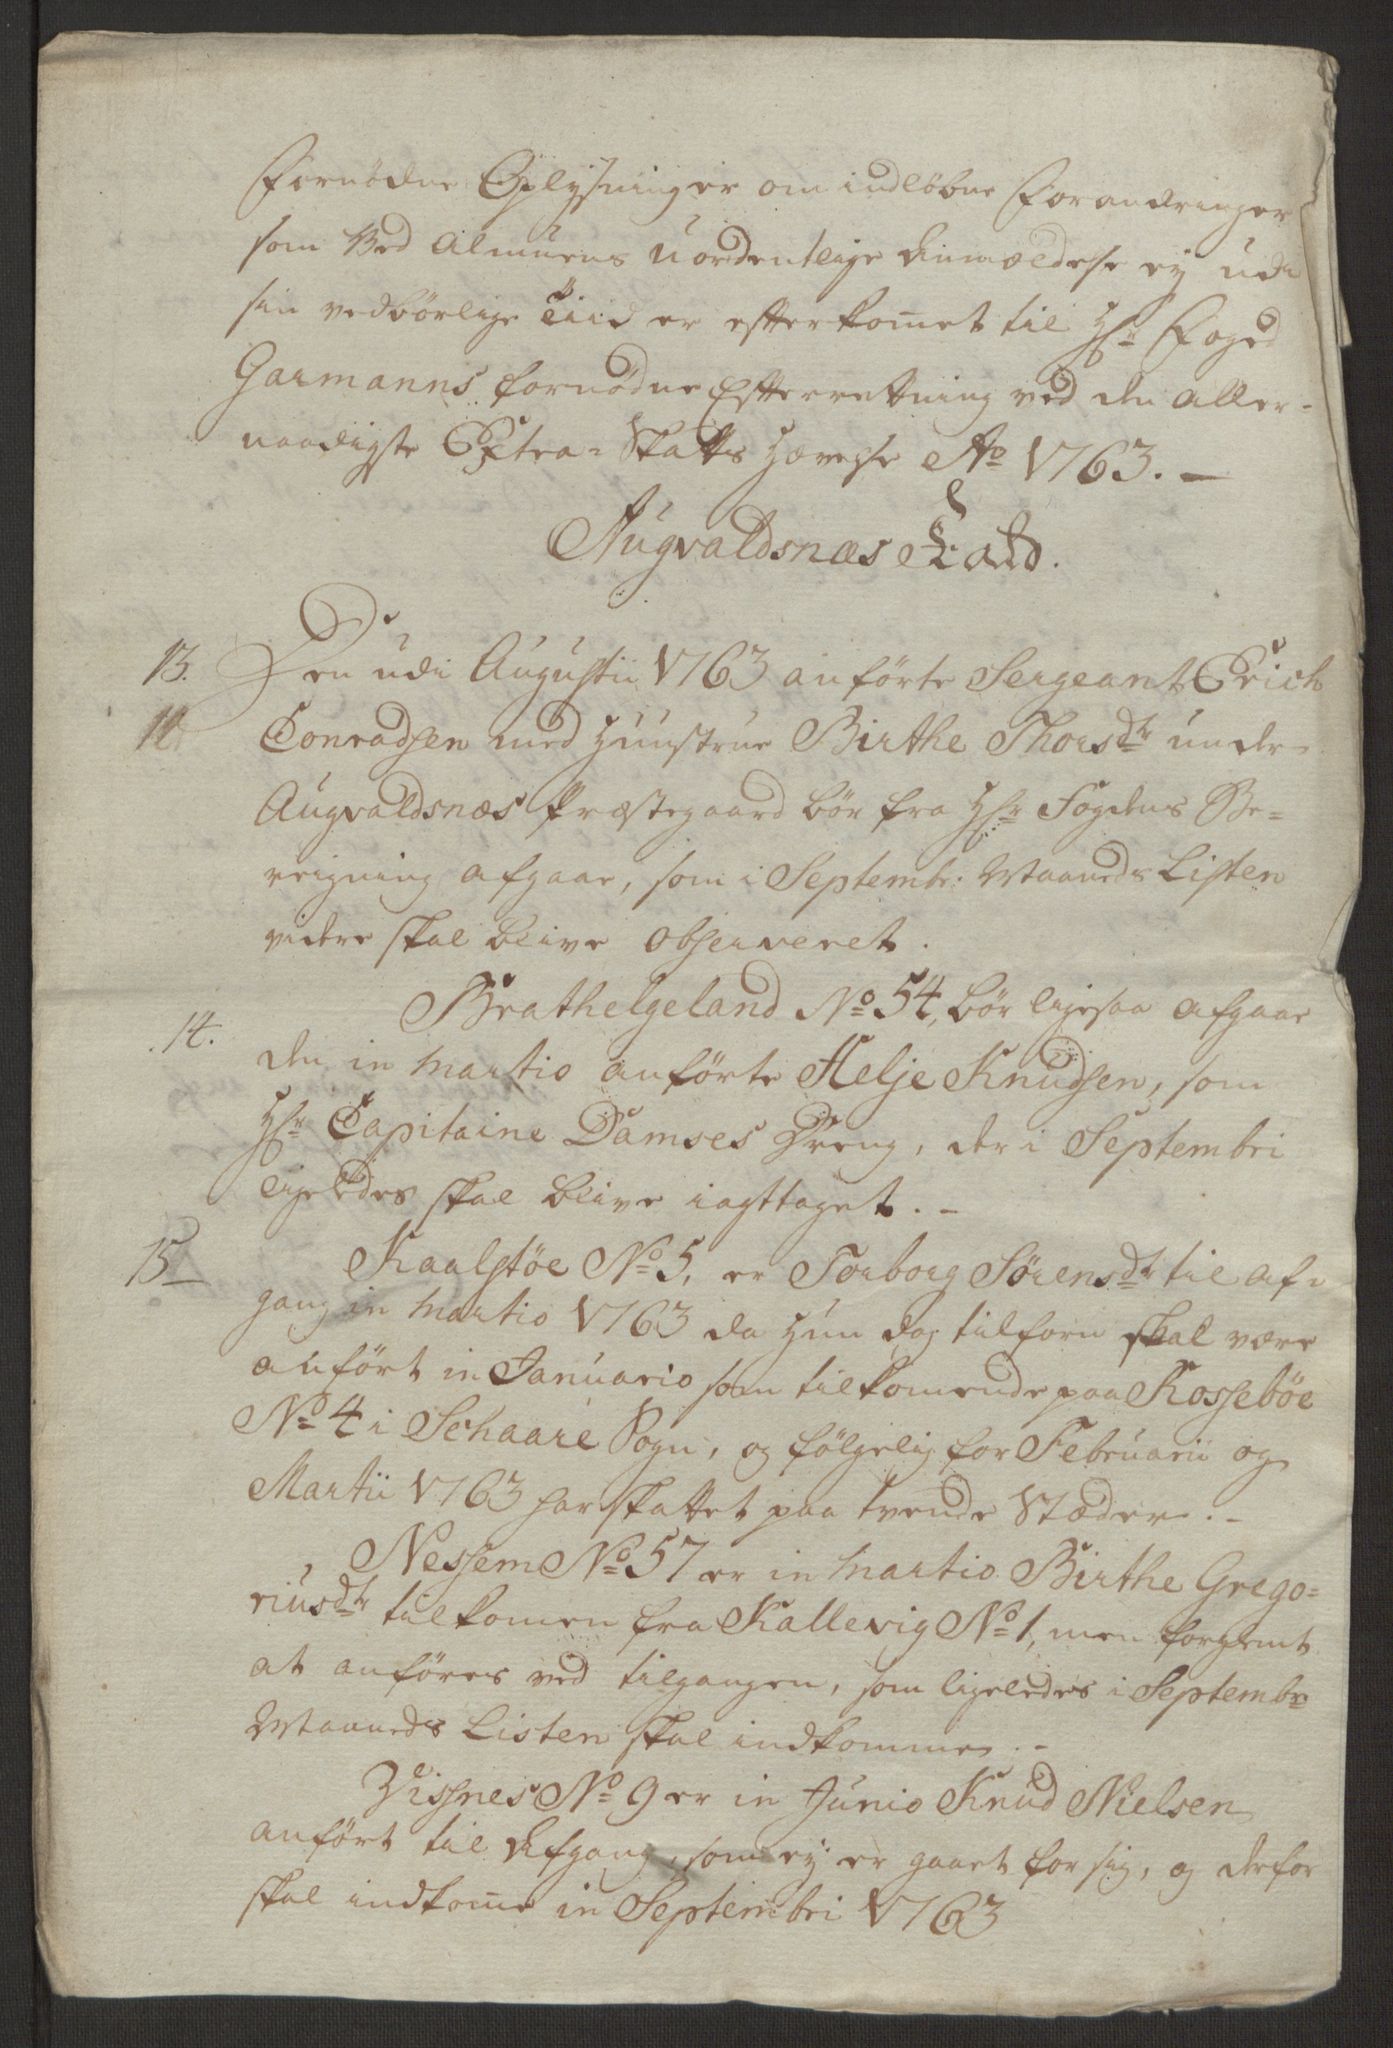 Fornödne Oplysninger om indløbne Forandringer
som Ved Almuens uordentlige Anmældelse ey udi
sin vedbörlige Tiid er efterkom̄et til Hr: Foged
Garmanns fornødne Efterretning ved den Aller-
naadigste Extra-Skatts Hævelse Ao 1763. –
Augvaldsnæs
13. Den udi Augustii 1763 anførte Sergeant Erich
Conradsen med Huustrue Birthe Thorsdtr under
Augvaldsnæs Præstegaard bör fra Hr: Fogdens Be-
reigning afgaae, som i Septembr: Maaneds Listen
videre skal blive observeret.
14. Brathelgeland No 54, bör ligesaa afgaae
den in Martio anførte Helje Knudsen, som
Hr: Capitaine Damses Dreng, der i Septembri
ligeledes skal blive iagttaget. –
15 Kaalstöe No 5, er Torborg Sørensdtr til af-
gang in Martio 1763 da hun dog tilforn skal være
anført in Januario som tilkomende paa Kossebøe
No 4 i Schaare Sogn, og følgelig for Februarii og
Martii 1763 har skattet paa tvende Stæder. –
Nessem No 57 er in Martio Birthe Grego-
riusdtr tilkomen fra Kallevig No 1, men forglemt
at anføres ved tilgangen, som ligeledes i Septembr
Maaneds Listen skal indkomme. –
Vissnes No 9 er in Junio Knud Nielsen
anført til Afgang, som ey er gaaet for sig, og derfor
skal indkom̄e in Septembri 1763